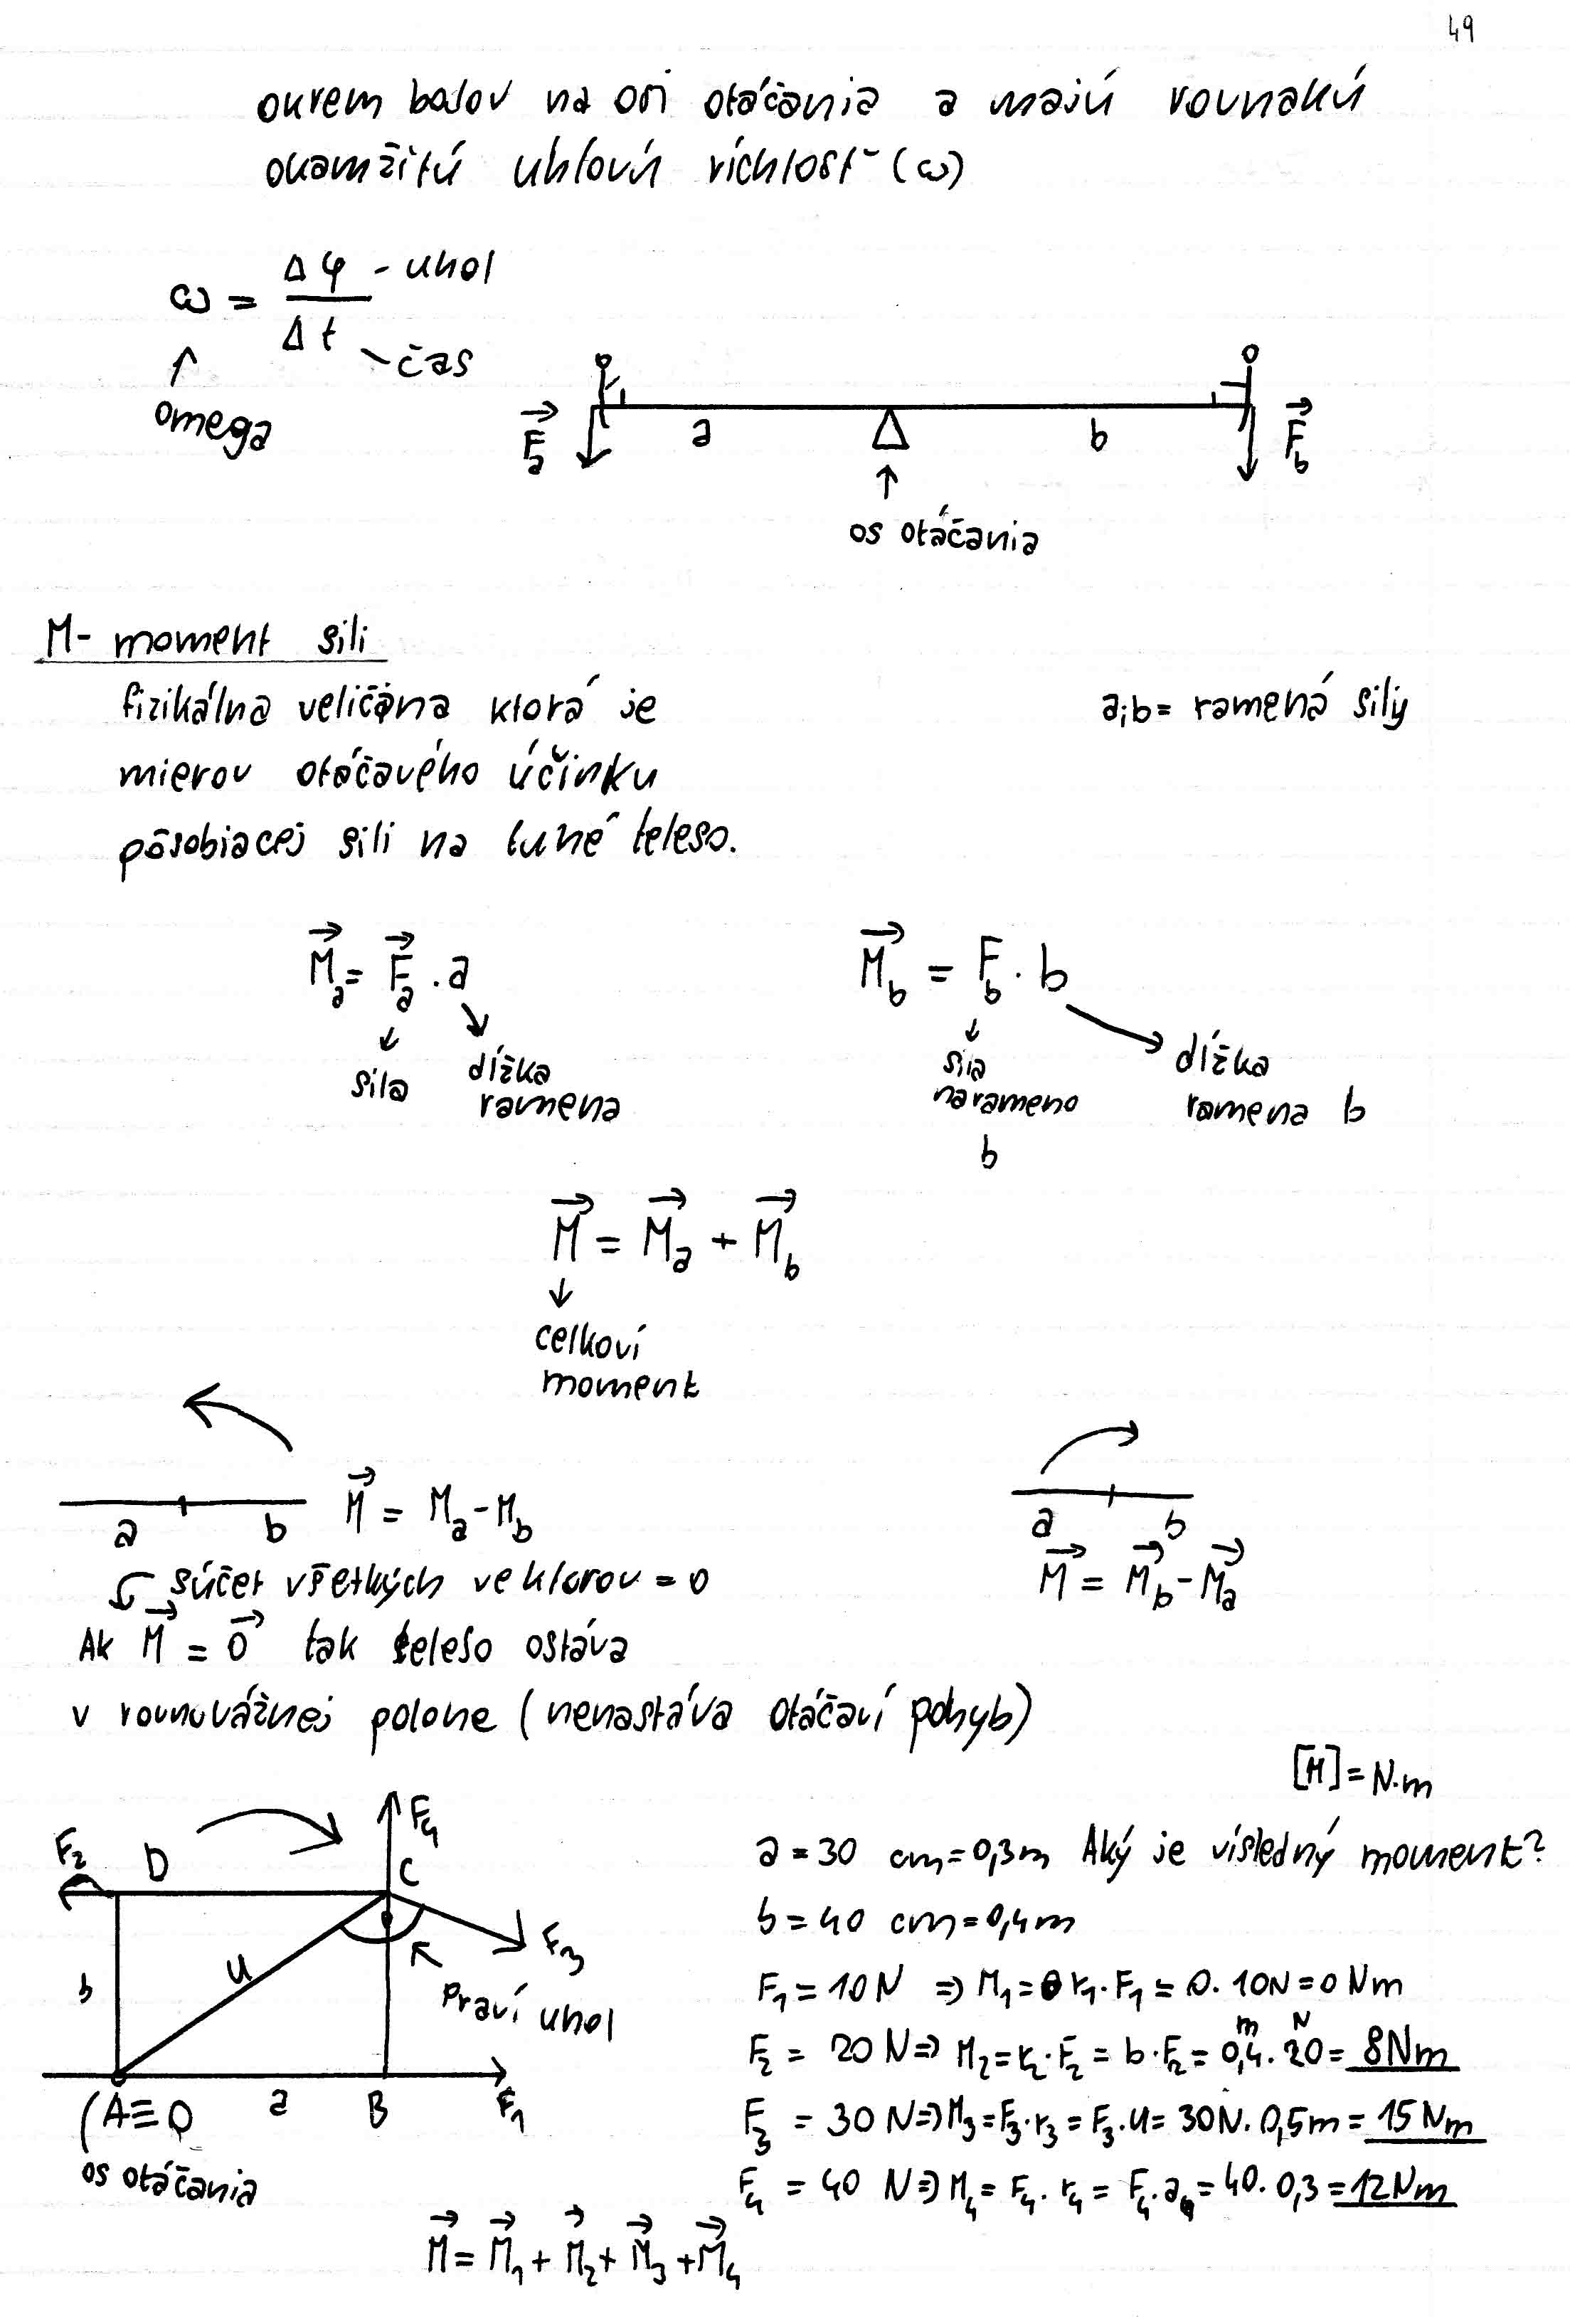 49
okrem bodov na osi otáčania a majú rovnakú
okamžitú uhlovú ríchlosť (ω)
ω = Δφ - uhol
Δt - čas
↑
omega
Fa a b Fb
↑
os otáčania
M - moment sili
fizikálna veličina ktorá je
a;b = ramená sily
mierou otáčavého účinku
pôsobiacej sili na tuhé teleso.
Ma = Fa . a
Mb = Fb . b
sila
dĺžka
ramena
sila
na rameno
b
dĺžka
ramena b
M = Ma + Mb
↓
celkoví
moment
a b
M = Ma - Mb
a b
M = Mb - Ma
súčet všetkých vektorov = 0
Ak M = 0 tak teleso ostáva
v rovnovážnej polohe (nenastáva otáčaví pohyb)
[M] = N.m
F4
F2 D C
F3
b u
Praví uhol
(A≡O a B F1
os otáčania
a = 30 cm = 0,3m Aký je vísledný moment?
b = 40 cm = 0,4m
F1 = 10 N => M1 = r1.F1 = 0. 10N = 0 Nm
F2 = 20 N => M2 = r2.F2 = b.F2 = 0,4m. 20N = 8Nm
F3 = 30 N => M3 = F3.r3 = F3.u = 30N. 0,5m = 15 Nm
F4 = 40 N => M4 = F4. r4 = F4.a = 40. 0,3 = 12Nm
M = M1 + M2 + M3 + M4